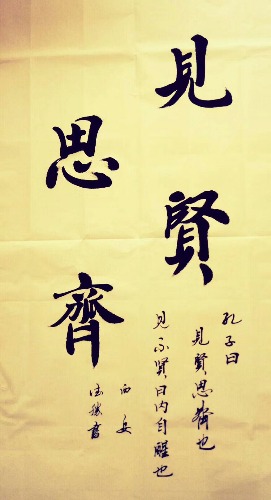 見賢
思齊
孔子曰
見賢思齊也
見不賢曰内自醒也
西安
法穆書